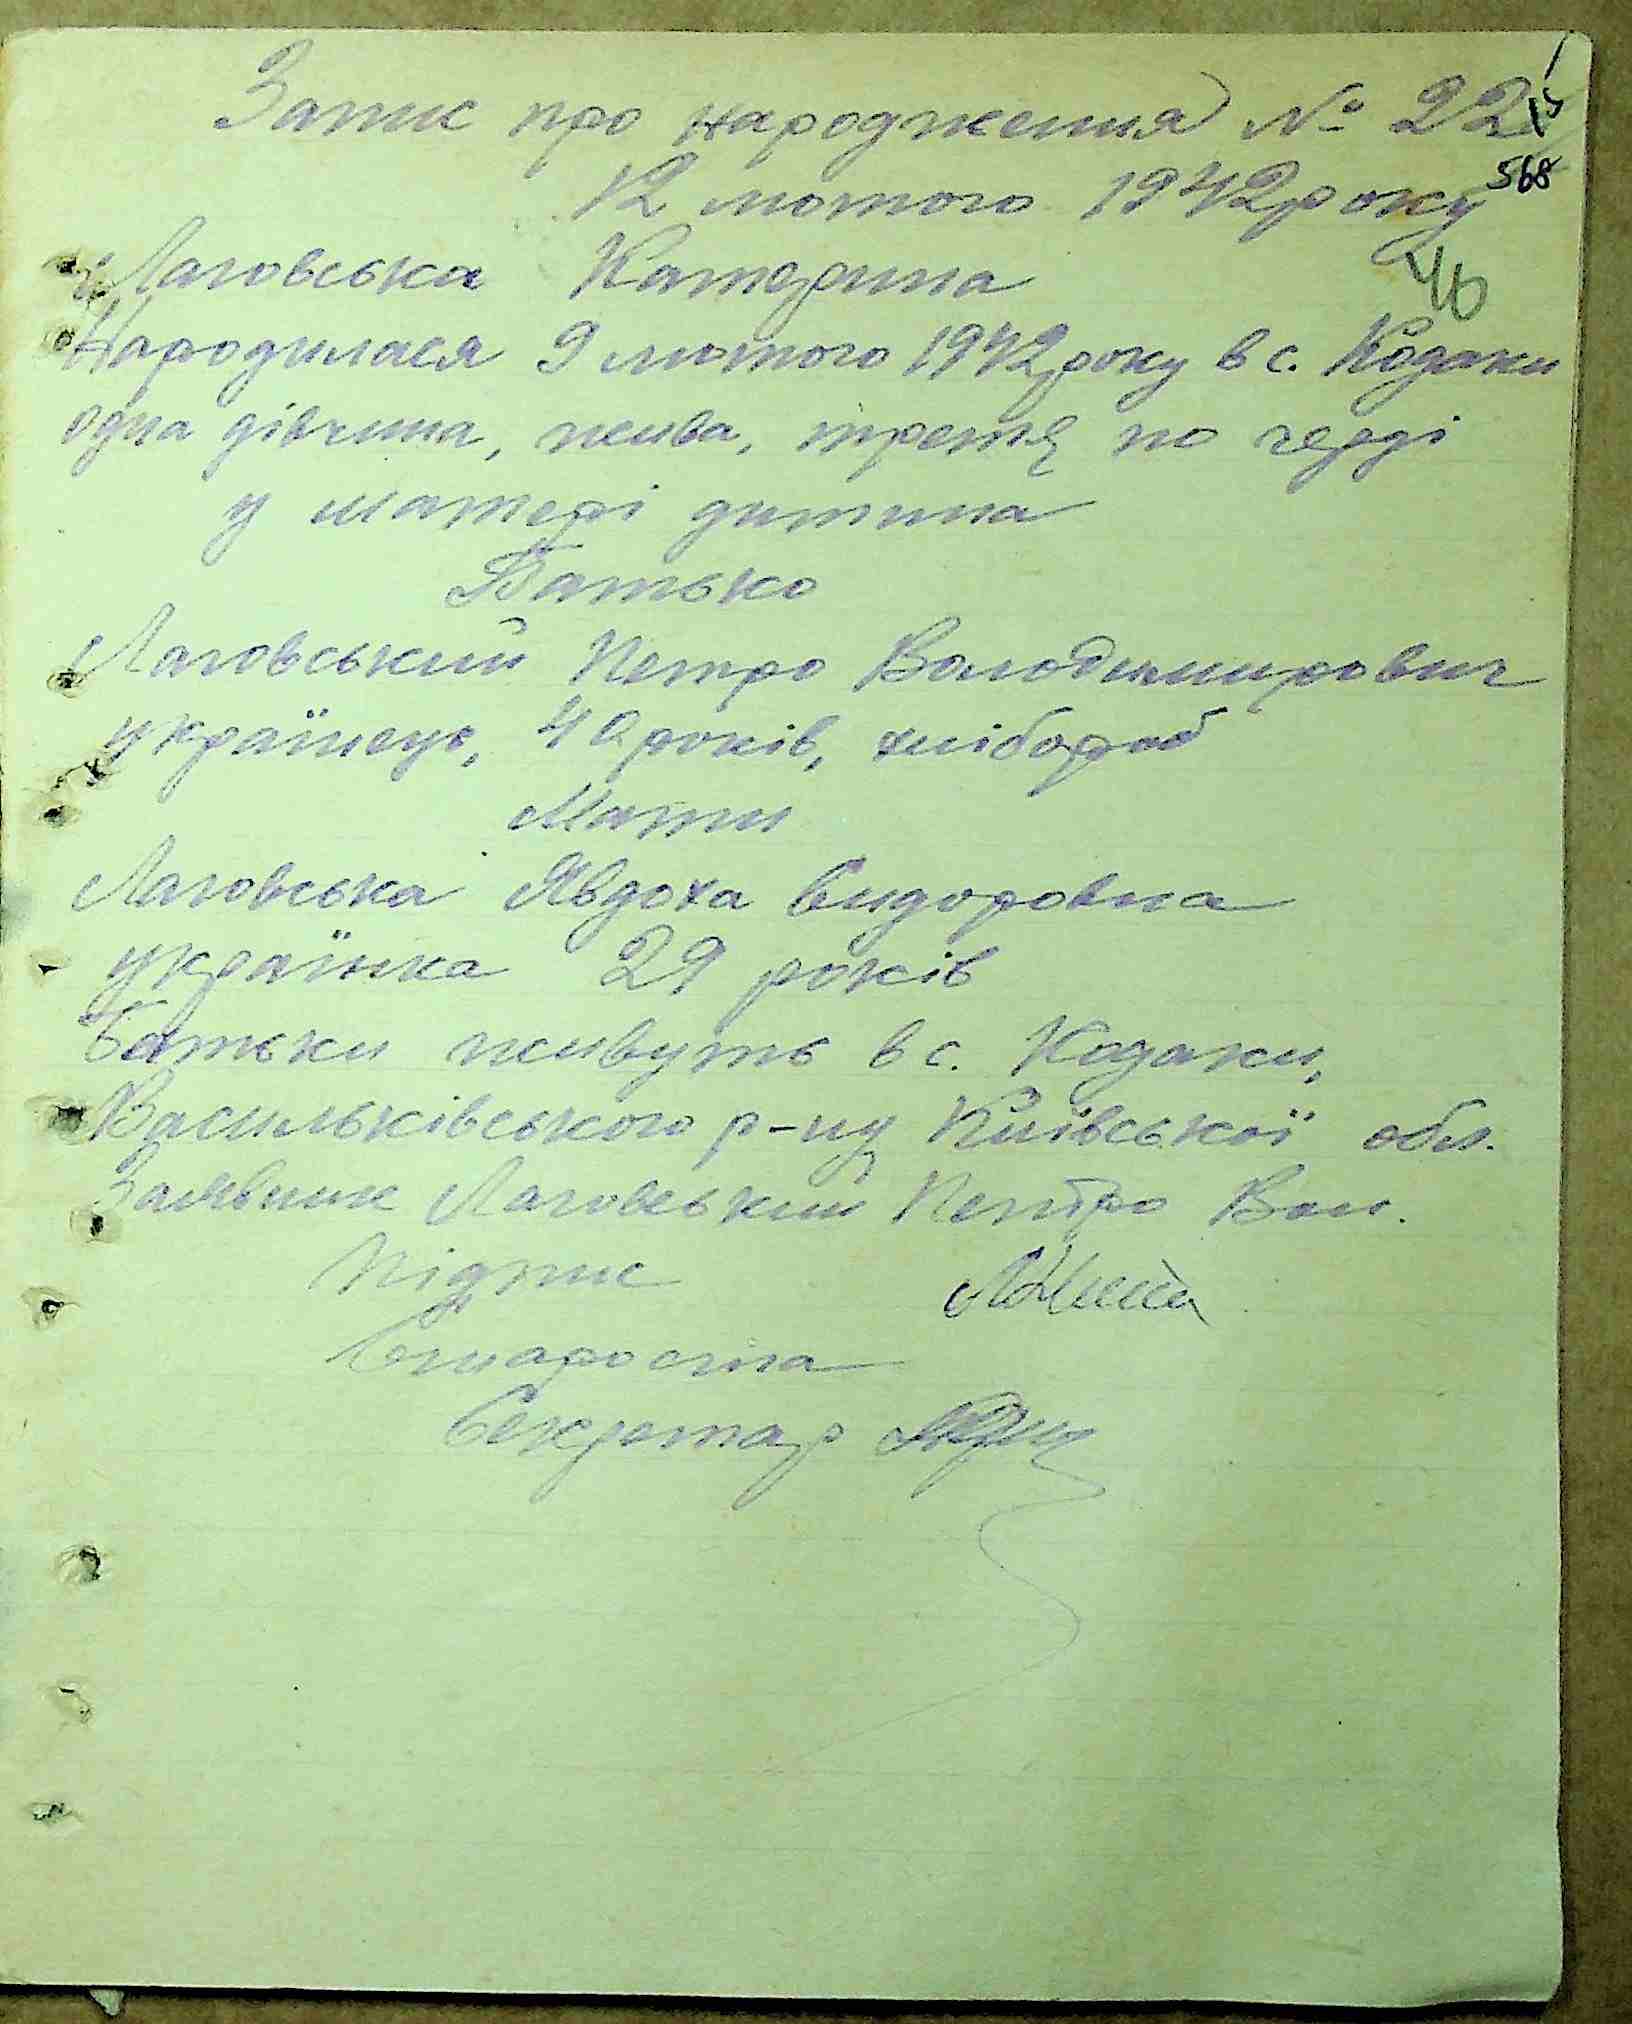 Запис про народження № 22
568
12 лютого 1942 року
46
Лаговська Катерина
Народилася 9 лютого 1942 року в с. Кодаки
одна дівчина, жива, третя по черзі
у матері дитина
Батько
Лаговський Петро Володимирович
українець, 40 років, хлібороб
Мати
Лаговська Явдоха Сидоровна
українка 29 років
Батьки живуть в с. Кодаки,
Васильківського р-ну Київської обл.
Заявник Лаговський Петро Вол.
Підпис
Староста
Секретар